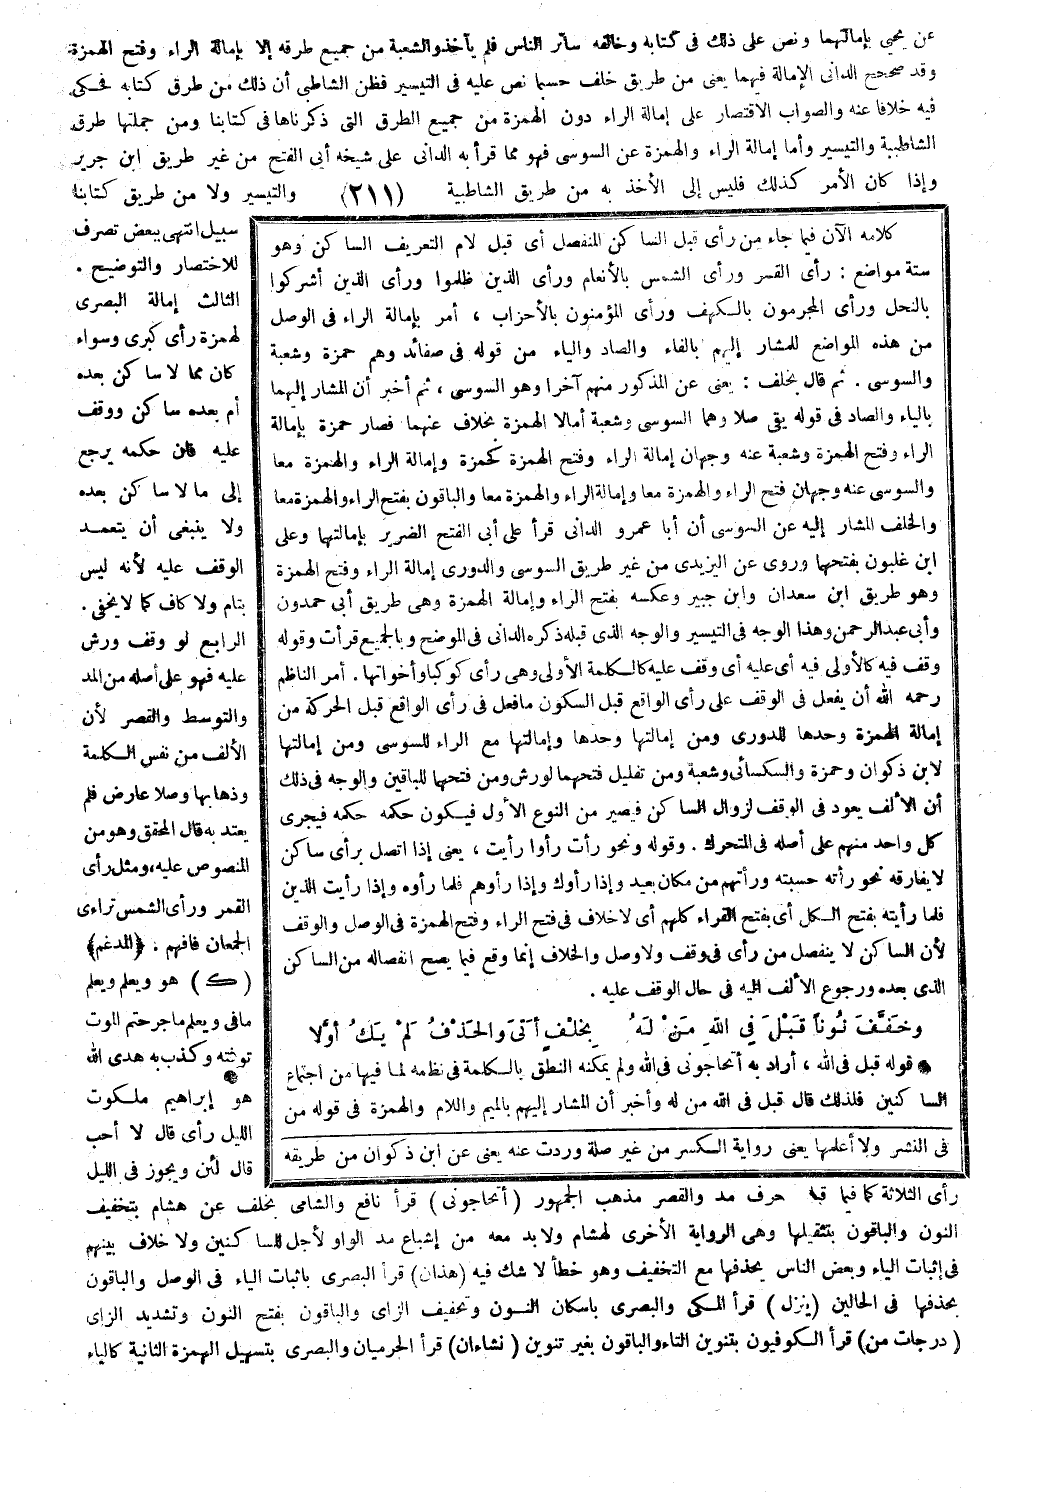 عن يحيى بإمالتهما ونص على ذلك فى كتابه وخالفه سائر الناس فلم يأخذوا لشعبة من جميع طرقه إلا بإمالة الراء وفتح الهمزة
وقد صحيح الدانى الإمالة فيهما يعنى من طريق خلف حسبما نص عليه فى التيسير فظن الشاطبى أن ذلك من طرق كتابه فحكى
فيه خلافا عنه والصواب الاقتصار على إمالة الراء دون الهمزة من جميع الطرق التى ذكرناها فى كتابنا ومن جملتها طرق
الشاطبية والتيسير وأما إمالة الراء والهمزة عن السوسى فهو مما قرأ به الدانى على شيخه أبى الفتح من غير طريق ابن جرير
وإذا كان الأمر كذلك فليس إلى الأخذ به من طريق الشاطبية (٢١١) والتيسير ولا من طريق كتابنا
سبيل انتهى ببعض تصرف
للاختصار والتوضيح .
الثالث إمالة البصرى
لهمزة رأى كبرى وسواء
كان مما لا ساكن بعده
أم بعده ساكن ووقف
عليه فان حكمه يرجع
إلى ما لا ساكن بعده
ولا ينبغى أن يتعمد
الوقف عليه لأنه ليس
بتام ولا كاف كما لا يخفى .
الرابع لو وقف ورش
عليه فهو على أصله من المد
والتوسط والقصر لأن
الألف من نفس الكلمة
وذهابها وصلا عارض فلم
يعتد به قال المحقق وهو من
المنصوص عليه، ومثل رأى
القمر ورأى الشمس تراءى
الجمعان فافهم . ﴿المدغم﴾
( ك ) هو ويعلم ويعلم
مافى ويعلم ما جرحتم الموت
توفته وكذب به هدى الله
هو إبراهيم ملكوت
الليل رأى قال لا أحب
قال لئن ويجوز فى الليل
كلامه الآن فيما جاء من رأى قبل الساكن المنفصل أى قبل لام التعريف الساكن وهو
ستة مواضع : رأى القمر ورأى الشمس بالأنعام ورأى الذين ظلموا ورأى الذين أشركوا
بالنحل ورأى المجرمون بالكهف ورأى المؤمنون بالأحزاب ، أمر بإمالة الراء فى الوصل
من هذه المواضع للمشار إليهم بالفاء والصاد والياء من قوله فى صفا يد وهم حمزة وشعبة
والسوسى . ثم قال بخلف : يعنى عن المذكور منهم آخرا وهو السوسى ، ثم أخبر أن المشار إليهما
بالياء والصاد فى قوله يقى صلا وهما السوسى وشعبة أمالا الهمزة بخلاف عنهما فصار حمزة بإمالة
الراء وفتح الهمزة وشعبة عنه وجهان إمالة الراء وفتح الهمزة كحمزة وإمالة الراء والهمزة معا
والسوسى عنه وجهان فتح الراء والهمزة معا وإمالة الراء والهمزة معا والباقون بفتح الراء والهمزة معا
والخلف المشار إليه عن السوسى أن أبا عمرو الدانى قرأ على أبى الفتح الضرير بإمالتها وعلى
ابن غلبون بفتحها وروى عن اليزيدى من غير طريق السوسى والدورى إمالة الراء وفتح الهمزة
وهو طريق ابن سعدان وابن جبير وعكسه بفتح الراء وإمالة الهمزة وهى طريق أبى حمدون
وأبى عبد الرحمن وهذا الوجه فى التيسير والوجه الذى قبله ذكره الدانى فى الموضح وبالجميع قرأت وقوله
وقف فيه كالأولى فيه أى عليه أى وقف عليه كالكلمة الأولى وهى رأى كوكبا وأخواتها . أمر الناظم
رحمه الله أن يفعل فى الوقف على رأى الواقع قبل السكون مافعل فى رأى الواقع قبل الحركة من
إمالة الهمزة وحدها للدورى ومن إمالتها وحدها وإمالتها مع الراء للسوسى ومن إمالتها
لابن ذكوان وحمزة والكسائى وشعبة ومن تقليل فتحهما لورش ومن فتحها للباقين والوجه فى ذلك
أن الألف يعود فى الوقف لزوال الساكن فيصير من النوع الأول فيكون حكمه حكمه فيجرى
كل واحد منهم على أصله فى المتحرك . وقوله ونحو رأت رأوا رأيت ، يعنى إذا اتصل برأى ساكن
لا يفارقه نحو رأته حسبته ورأتهم من مكان بعيد وإذا رأوك وإذا رأوهم فلما رأوه وإذا رأيت الذين
فلما رأيته بفتح الكل أى بفتح القراء كلهم أى لا خلاف فى فتح الراء وفتح الهمزة فى الوصل والوقف
لأن الساكن لا ينفصل من رأى فى وقف ولا وصل والخلاف إنما وقع فيما يصح انفصاله من الساكن
الذى بعده ورجوع الألف إليه فى حال الوقف عليه .
وَخَفَّفَ نُوناً قَبْلَ فِي اللهِ مَنْ لَهُ بِخُلْفٍ أَتَى وَالحَذْفُ لَمْ يَكُ أوَّلا
● قوله قبل فى الله ، أراد به أتحاجونى فى الله ولم يمكنه النطق بالكلمة فى نظمه لما فيها من اجتماع
الساكنين فلذلك قال قبل فى الله من له وأخبر أن المشار إليهم بالميم واللام والهمزة فى قوله من
فى النشر ولا أعلمها يعنى رواية الكسر من غير صلة وردت عنه يعنى عن ابن ذكوان من طريقه
رأى الثلاثة كما فيما قبله حرف مد والقصر مذهب الجمهور (أتحاجونى) قرأ نافع والشامى بخلف عن هشام بتخفيف
النون والباقون بتثقيلها وهى الرواية الأخرى لهشام ولا بد معه من إشباع مد الواو لأجل الساكنين ولا خلاف بينهم
فى إثبات الياء وبعض الناس يحذفها مع التخفيف وهو خطأ لا شك فيه (هدان) قرأ البصرى باثبات الياء فى الوصل والباقون
بحذفها فى الحالين (ينزل) قرأ المكى والبصرى باسكان النون وتخفيف الزاى والباقون بفتح النون وتشديد الزاى
(درجات من) قرأ الكوفيون بتنوين التاء والباقون بغير تنوين (نشاء إن) قرأ الحرميان والبصرى بتسهيل الهمزة الثانية كالياء